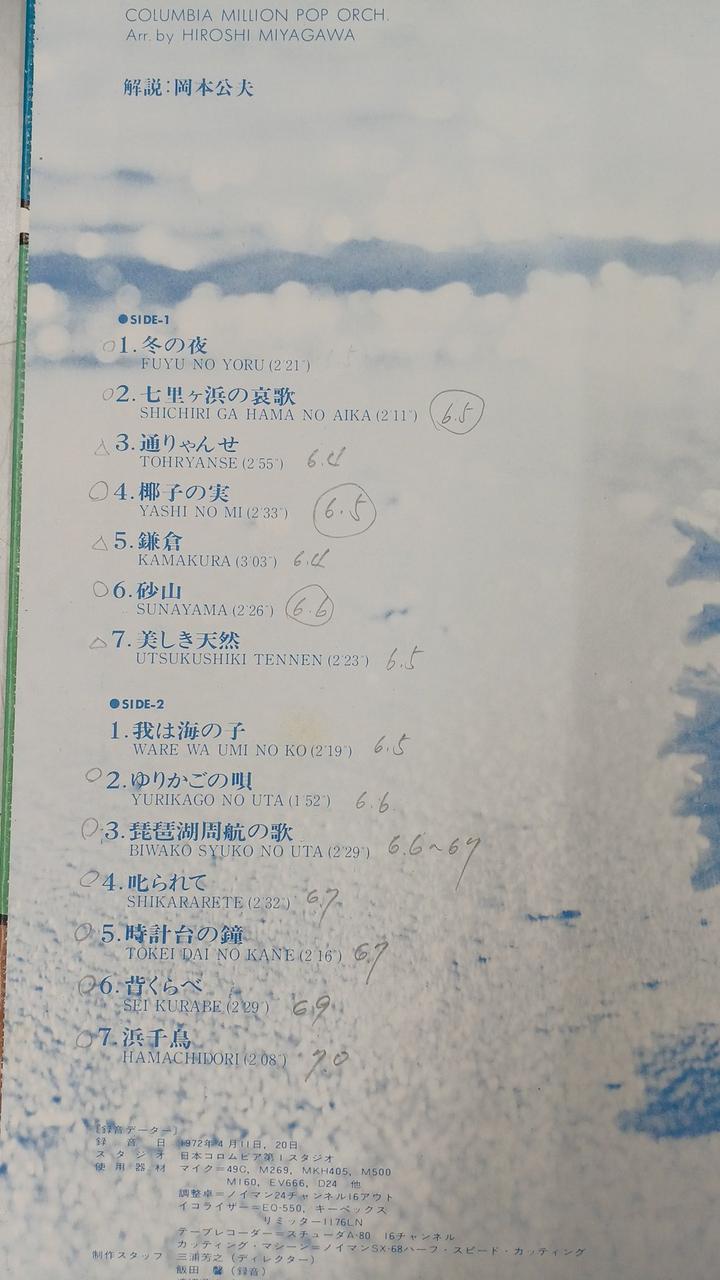 COLUMBIA MILLION POP ORCH.
Arr. by HIROSHI MIYAGAWA
解説：岡本公夫
●SIDE-1
○1.冬の夜
FUYU NO YORU (2′21″)
○2.七里ヶ浜の哀歌
SHICHIRI GA HAMA NO AIKA (2′11″) 6.5
△3.通りゃんせ
TOHRYANSE (2′55″) 6.4
○4.椰子の実
YASHI NO MI (2′33″) 6.5
△5.鎌倉
KAMAKURA (3′03″) 6.4
○6.砂山
SUNAYAMA (2′26″) 6.6
△7.美しき天然
UTSUKUSHIKI TENNEN (2′23″) 6.5
●SIDE-2
1.我は海の子
WARE WA UMI NO KO (2′19″) 6.5
○2.ゆりかごの唄
YURIKAGO NO UTA (1′52″) 6.6
○3.琵琶湖周航の歌
BIWAKO SYUKO NO UTA (2′29″) 6.6~67
○4.叱られて
SHIKARARETE (2′32″) 6.7
○5.時計台の鐘
TOKEI DAI NO KANE (2′16″) 6.7
○6.背くらべ
SEI KURABE (2′29″) 6.9
○7.浜千鳥
HAMACHIDORI (2′08″) 7.0
〔録音データー〕
録音日 1972年4月11日, 20日
スタジオ 日本コロムビア第1スタジオ
使用器材 マイク=49C, M269, MKH405, M500
M160, EV666, D24 他
調整卓=ノイマン24チャンネル16アウト
イコライザー=EQ-550, キーペックス
リミッター1176LN
テープレコーダー=スチューダA-80 16チャンネル
カッティング・マシーン=ノイマンSX-68ハーフ・スピード・カッティング
制作スタッフ 三浦芳之(ディレクター)
飯田 馨(録音)